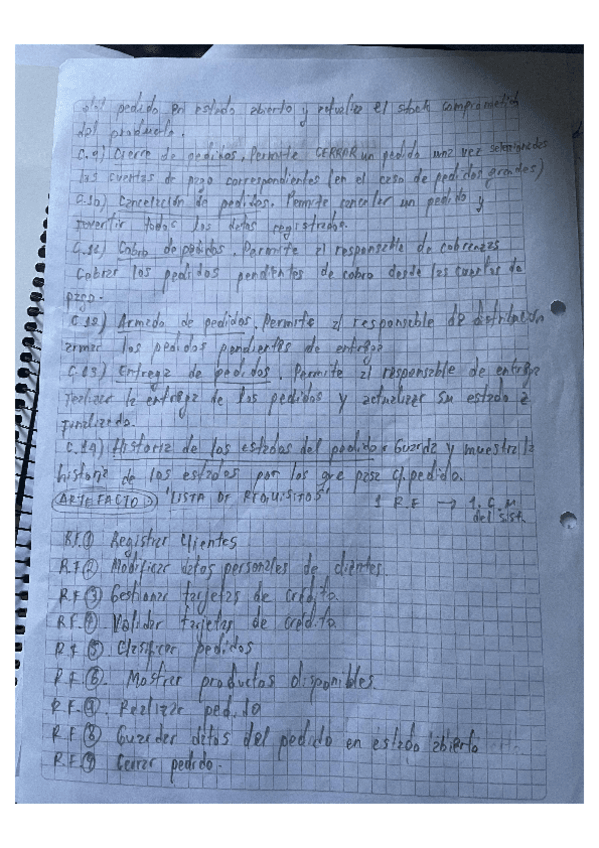 del pedido en estado abierto y actualiza el stock comprometido
del producto.
C.9) Cierre de pedidos. Permite CERRAR un pedido una vez seleccionadas
las cuentas de pago correspondientes (en el caso de pedidos grandes)
C.10) Cancelación de pedidos. Permite cancelar un pedido y
revertir todos los datos registrados.
C.11) Cobro de pedidos. Permite al responsable de cobranzas
Cobrar los pedidos pendientes de cobro desde las cuentas de
pago.
C.12) Armado de pedidos. Permite al responsable de distribución
armar los pedidos pendientes de entrega
C.13) Entrega de pedidos. Permite al responsable de entrega
realizar la entrega de los pedidos y actualizar su estado a
finalizado.
C.14) Historia de los estados del pedido: Guarda y muestra la
historia de los estados por los que pasa el pedido.
ARTEFACTO "LISTA DE REQUISITOS" 1 R.F → 1. C.U
del sist.
R.F.① Registrar Clientes
R.F.② Modificar datos personales de clientes.
R.F.③ Gestionar tarjetas de crédito.
R.F.④ Validar tarjetas de crédito.
R.F.⑤ Clasificar pedidos
R.F.⑥. Mostrar productos disponibles.
R.F. Realizar pedido
R.F.⑧ Guardar datos del pedido en estado "abierto
R.F.⑨ Cerrar pedido.